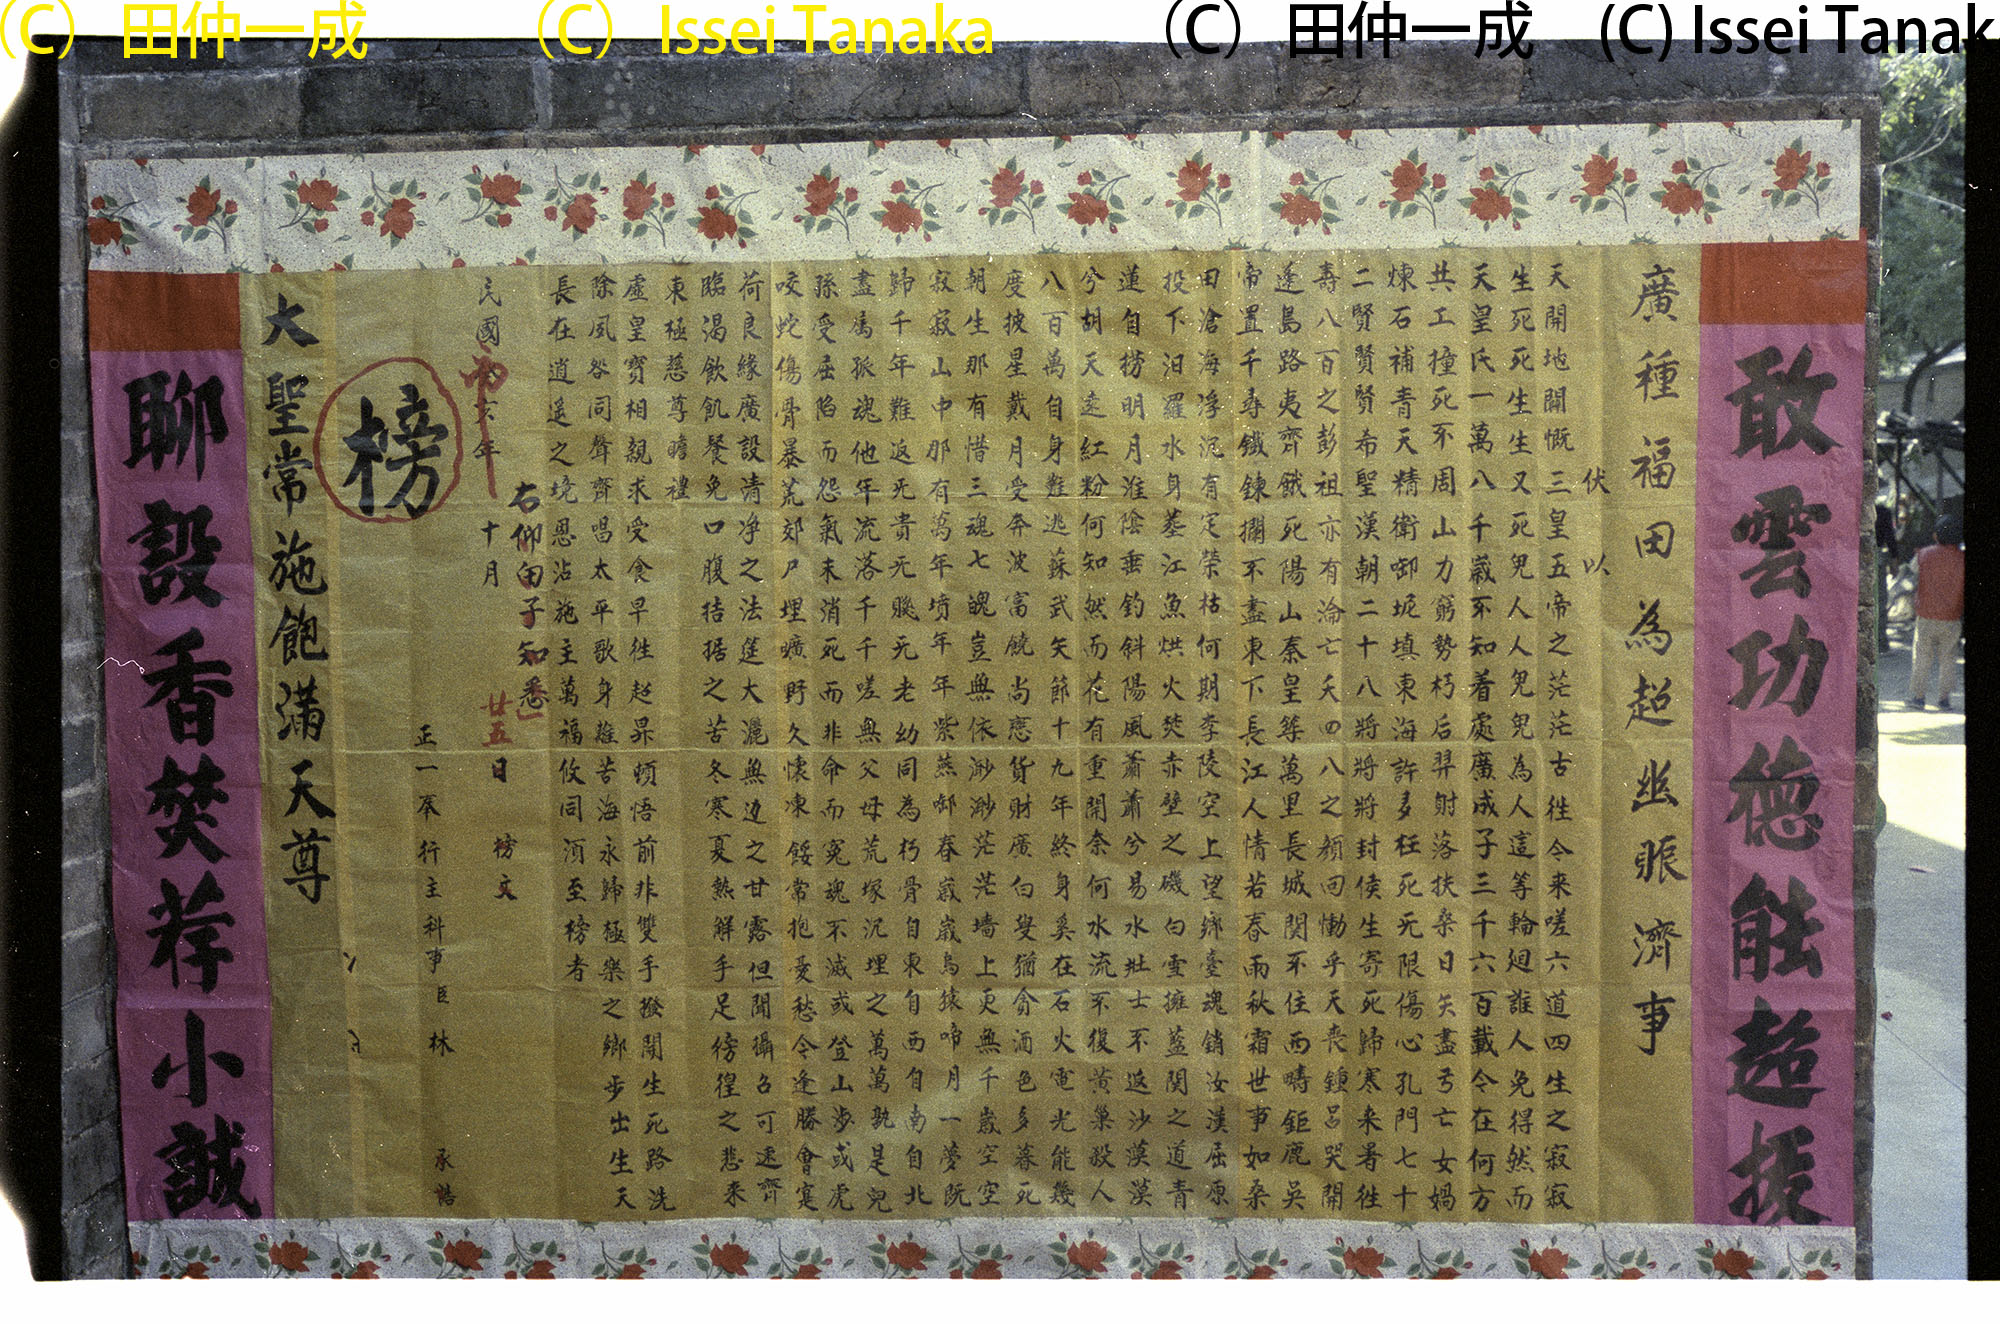 (C) 田仲一成 (C) Issei Tanaka (C) 田仲一成 (C) Issei Tanak
敢雲功德能超拔
廣種福田為超幽賑濟事
伏以
天開地闢慨三皇五帝之茫茫古徃今来嗟六道四生之寂寂
生死死生生又死鬼人人鬼鬼為人這等輪廻誰人免得然而
天皇氏一萬八千歲不知着處廣成子三千六百載令在何方
共工撞死不周山力窮勢朽后羿射落扶桑日矢盡弓亡女媧
煉石補青天精衛啣坭填東海許多枉死无限傷心孔門七十
二賢賢賢希聖漢朝二十八將將將封侯生寄死歸寒来暑徃
壽八百之彭祖亦有淪亡夭四八之顏回慟乎天喪鍾呂哭開
逢島路夷齊餓死陽山秦皇筭萬里長城関不住西疇鉅鹿吳
帝置千尋鐵鍊攔不盡東下長江人情若春雨秋霜世事如桑
田滄海浮沉有定榮枯何期李陵空上望鄉臺魂銷汝漢屈原
投下汨羅水身塟江魚烘火焚赤壁之磯白雪擁藍関之道青
蓮自撈明月淮陰垂釣斜陽風蕭蕭兮易水壯士不返沙漠漠
兮胡天遠紅粉何知然而花有重開奈何水流不復黃巢殺人
八百萬自身難逃蘇武矢節十九年終身奚在石火電光能幾
度披星戴月受奔波富饒尚應貨財廣白叟猶貪酒色多暮死
朝生那有惜三魂七魄豈無依渺渺茫茫墻上更無千歲空空
寂寂山中那有萬年墳年年紫燕啣春歲歲鳥猿啼月一夢既
歸千年難返死貴无賤无老幼同為朽骨自東自西自南自北
盡属孤魂他年流落千千嗟無父母荒塚沉埋之萬萬孰是兒
孫受屈陷而怨氣未消死而非命而冤魂不滅或登山涉或虎
咬蛇傷骨暴荒郊尸埋曠野久懷凍餒常抱憂愁今逢勝會寔
荷良緣廣設清净之法筵大灑無边之甘露但聞攝召可速齊
臨渴飲飢餐免口腹拮据之苦冬寒夏熱解手足徬徨之悲来
東極慈尊瞻禮
虛皇寶相親求受食早徃超昇頓悟前非雙手撥開生死路洗
除夙咎同聲齊唱太平歌身離苦海永歸極樂之鄉步出生天
長在逍遥之境恩沾施主萬福攸同須至榜者
右仰由子知悉
民國丙年十月廿五日榜文
正一奉行主科事臣林承誥
榜
大聖常施飽滿天尊
聊設香焚荐小誠